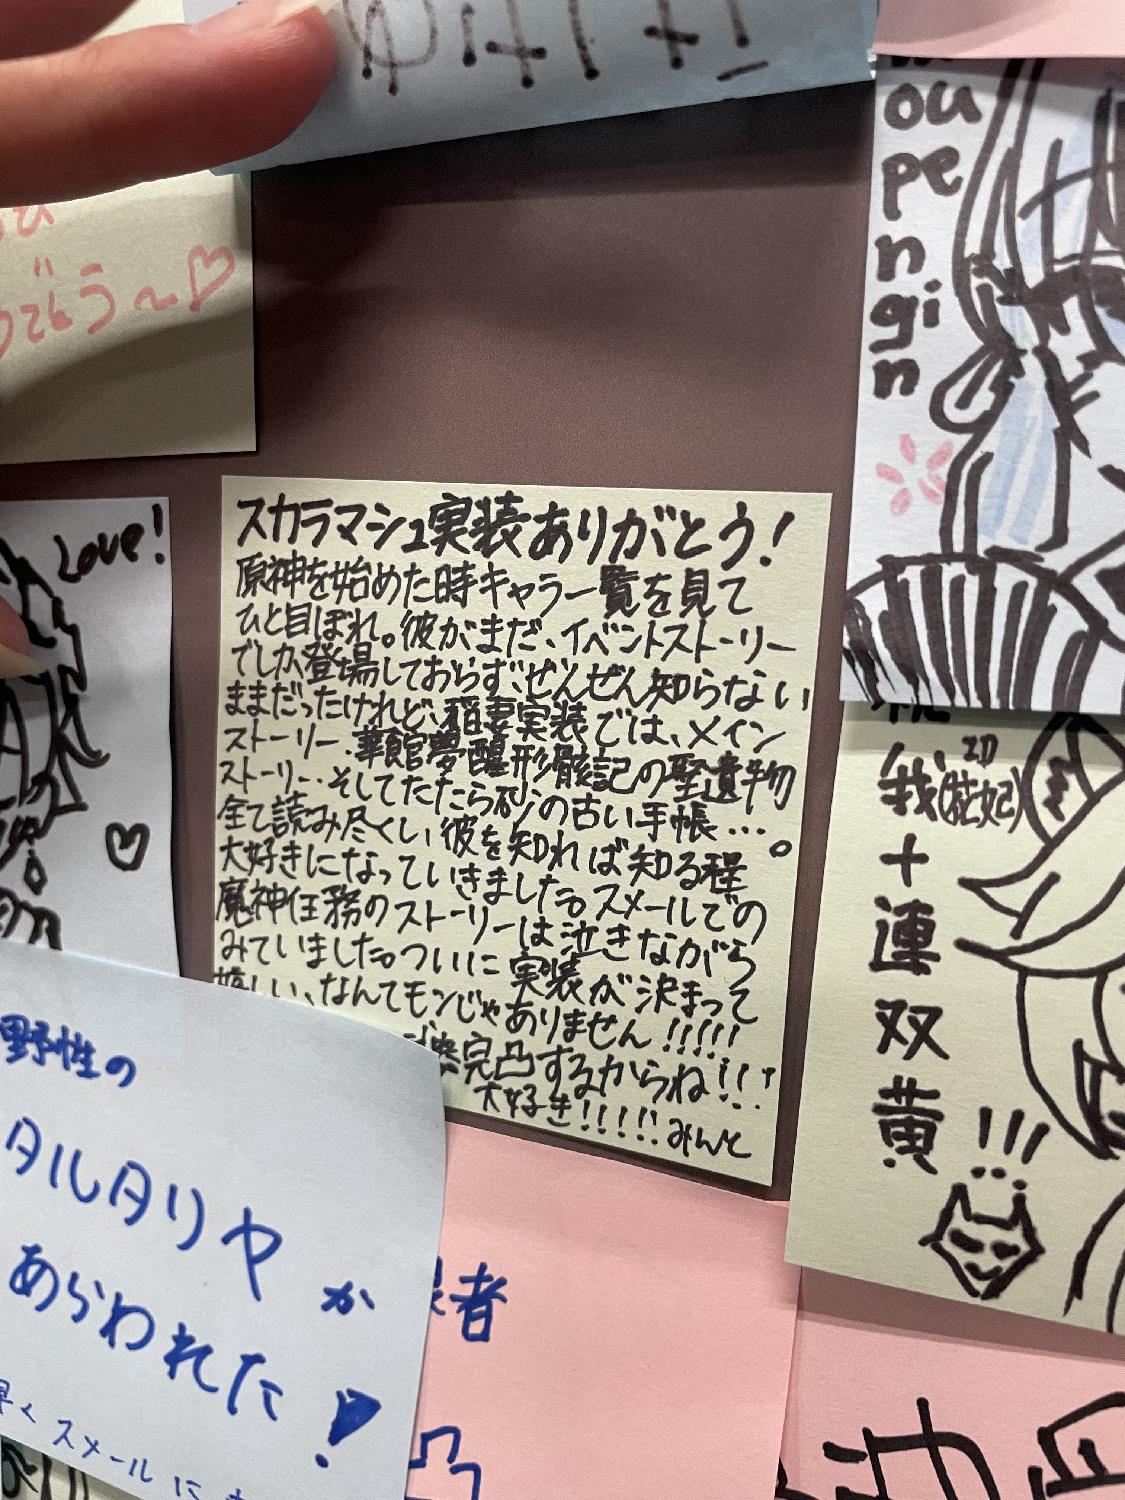 ou
pe
n
gi
n
Love!
スカラマシュ実装ありがとう!
原神を始めた時キャラ一覧を見て
ひと目ぼれ。彼がまだ、イベントストーリー
でしか登場しておらず、ぜんぜん知らない
ままだったけれど、稲妻実装では、メイン
ストーリー.華館夢醒形骸記の聖遺物
ストーリー.そしてたたら砂の古い手帳…
全て読み尽くし、彼を知れば知る程
大好きになっていきました。スメールでの
魔神任務のストーリーは泣きながら
みていました。ついに実装が決まって
嬉しい、なんてモンじゃありません!!!!!
完凸するからね!!!
大好き!!!!! みんと
我
十
連
双
黄
!!!
野性の
タルタリヤが
あらわれた!
早くスメールに
者